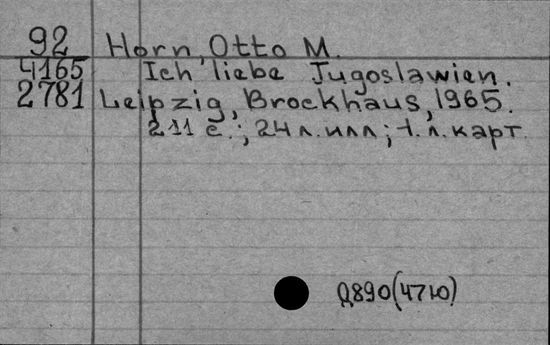 92
4165
2781
Horn, Otto M.
Ich liebe Jugoslawien.
Leipzig, Brockhaus, 1965.
211 с.; 24 л. илл; 1. л. карт.
Д890(47Ю)